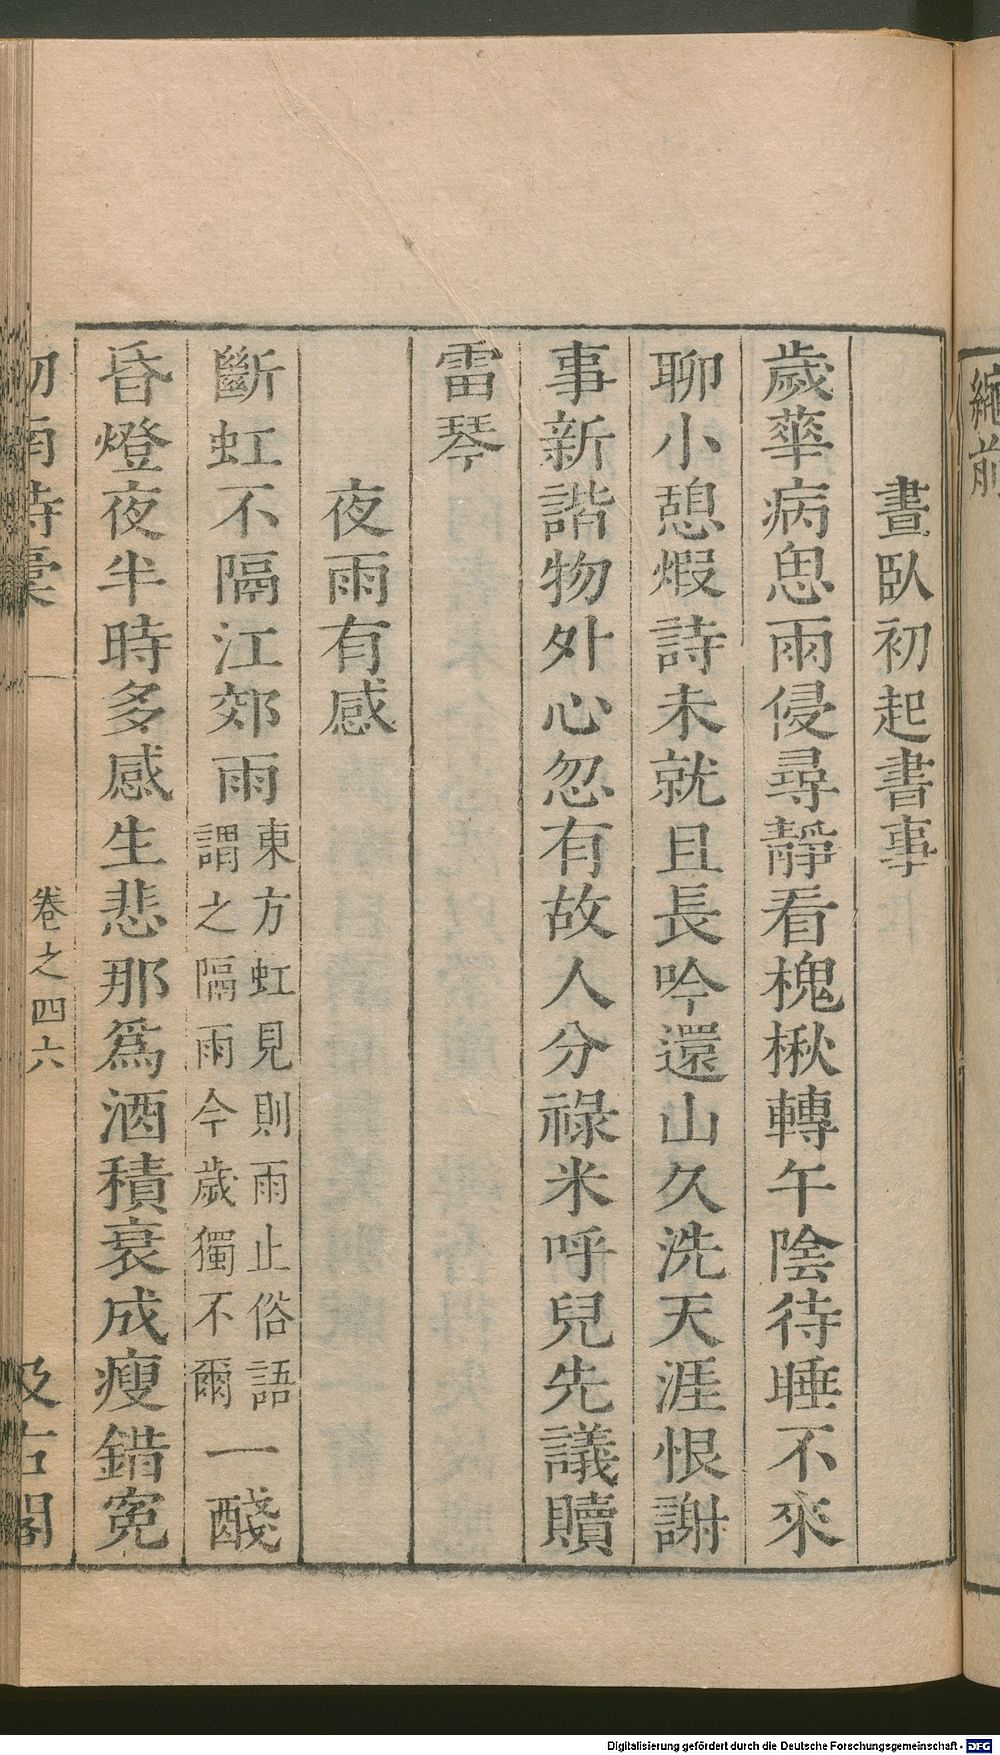 緣前
晝臥初起書事
歲華病思雨侵尋靜看槐楸轉午陰待睡不來
聊小憩煅詩未就且長吟還山久洗天涯恨謝
事新諧物外心忽有故人分祿米呼兒先議贖
雷琴
夜雨有感
斷虹不隔江郊雨東方虹見則雨止俗語謂之隔雨今歲獨不爾一醆
昏燈夜半時多感生悲那爲酒積衰成瘦錯寃
劒南詩稾 卷之四六 汲古閣
Digitalisierung gefördert durch die Deutsche Forschungsgemeinschaft - DFG